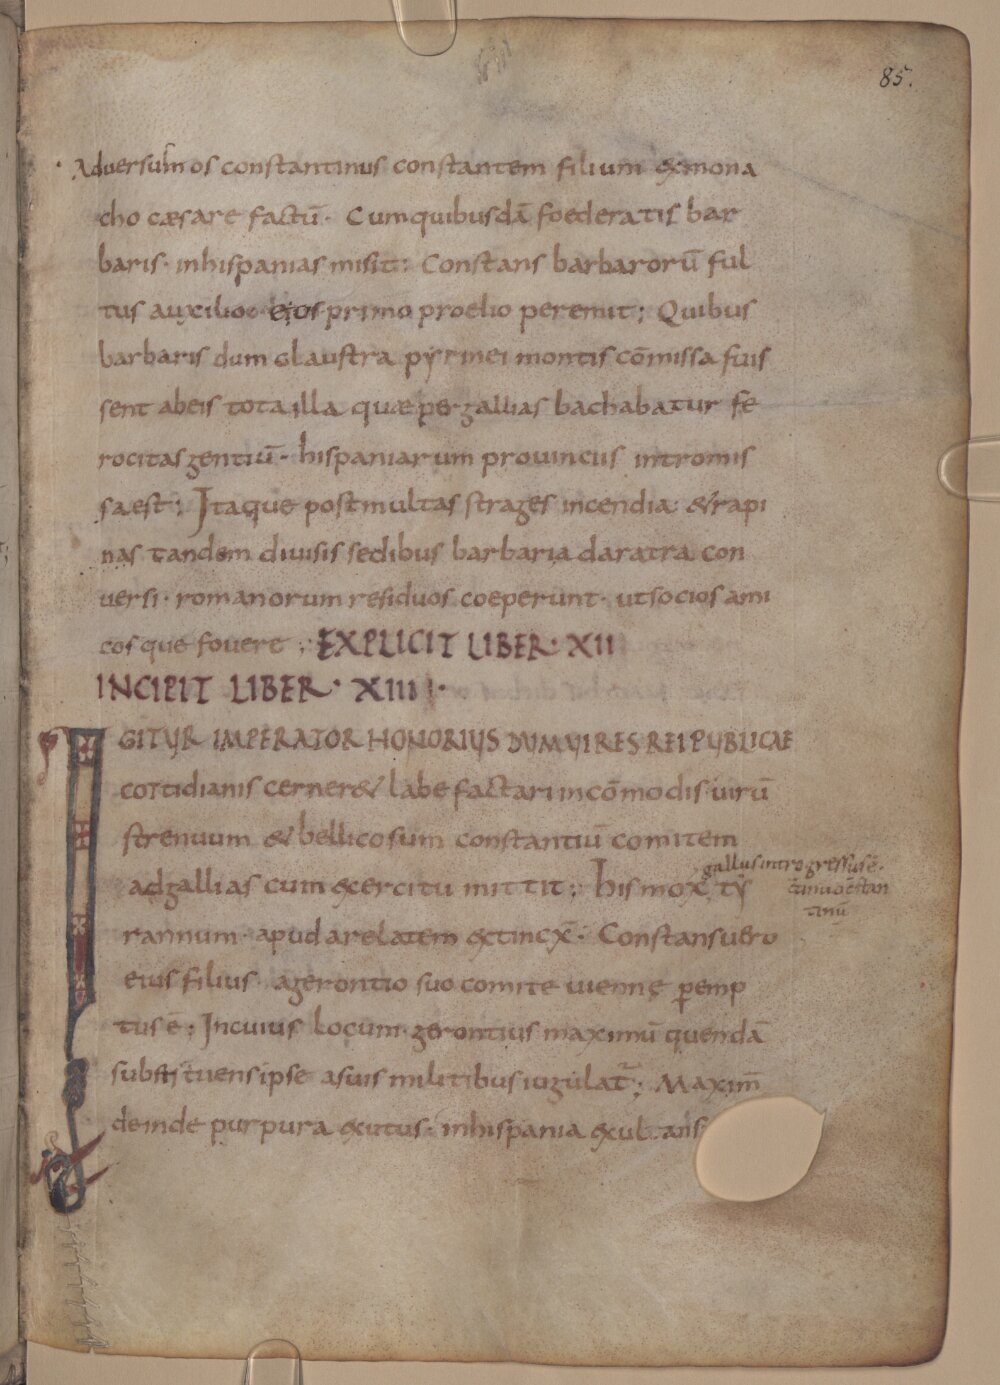 85.
Aduersum os constantinus constantem filium exmona
cho cæsare factū· Cumquibusdā foederatis bar
baris· inhispanias misit: Constans barbarorū ful
tus auxilio· eos primo proelio peremit; Quibus
barbaris dum claustra pyrinei montis cōmissa fuis
sent abeis tota illa quæ per gallias bachabatur fe
rocitas gentiū· hispaniarum prouinciis intromis
sa est; Itaque post multas strages incendia &rapi
nas tandem diuisis sedibus barbaria daratra con
uersi· romanorum residuos coeperunt· utsocios ami
cos que fouere; EXPLICIT LIBER· XII
INCIPIT LIBER· XIII·
IGITUR IMPERATOR HONORIUS DUM UIRES REIPUBLICAE
cottidianis cerner& labe factari incōmodis uirū
strenuum &bellicosum constantiū comitem
gallus introgressus ē·
adgallias cum exercitu mittit; his mox ty
rannum· apud arelatem extincx̄· Constans uero
eius filius· agerontio suo comite uienne p̄emp
tus ē; Incuius locum gerontius maximū quendā
substituens ipse asuis militibus iugulat̄; Maxim̄
deinde purpura exutus· inhispania exultans